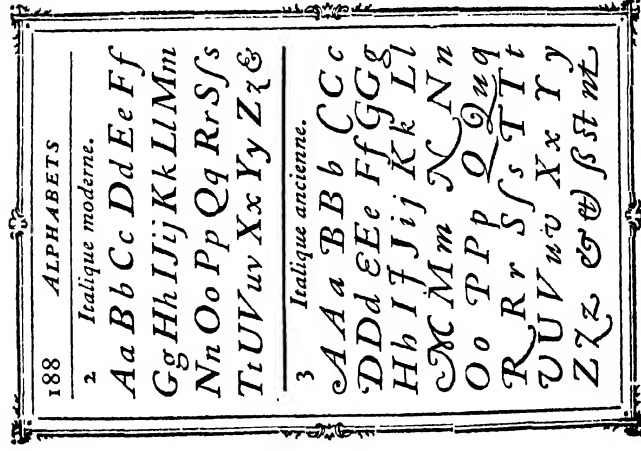 188 ALPHABETS
2 Italique moderne.
Aa Bb Cc Dd Ee Ff
Gg Hh IJij Kk Ll Mm
Nn Oo Pp Qq Rr Sſs
Tt UVuv Xx Yy Zz &
3 Italique ancienne.
AAa BBb CCc
DDd EEe Ff GGg
Hh IJ Jij Kk Ll
MMm NNn
Oo PPp QQuq
RRr Sſs TTt
UUVuv Xx Yy
ZZz & & ß st nt